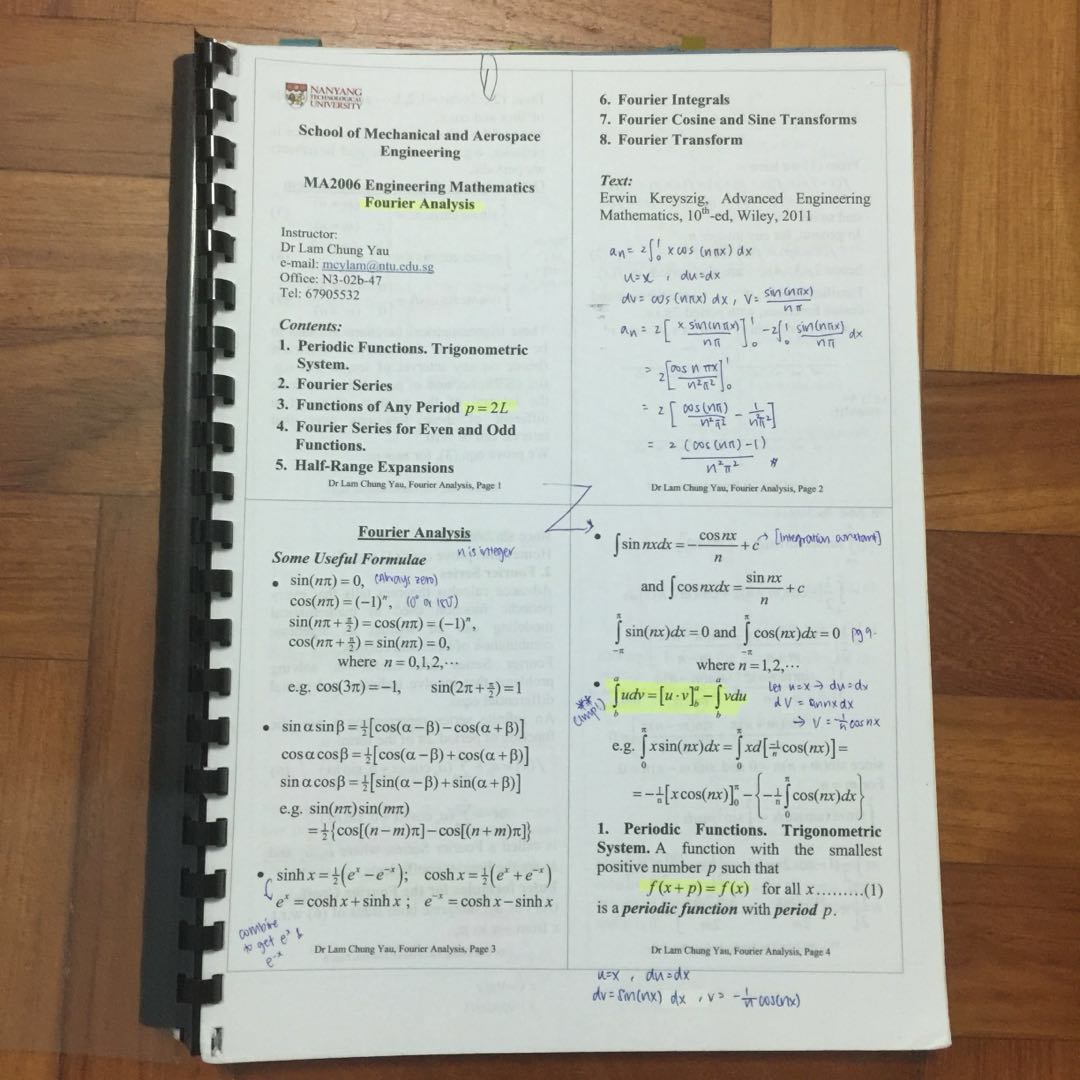 NANYANG
TECHNOLOGICAL
UNIVERSITY
School of Mechanical and Aerospace
Engineering
MA2006 Engineering Mathematics
Fourier Analysis
Instructor:
Dr Lam Chung Yau
e-mail: mcylam@ntu.edu.sg
Office: N3-02b-47
Tel: 67905532
Contents:
1. Periodic Functions. Trigonometric
System.
2. Fourier Series
3. Functions of Any Period p = 2L
4. Fourier Series for Even and Odd
Functions.
5. Half-Range Expansions
Dr Lam Chung Yau, Fourier Analysis, Page 1
6. Fourier Integrals
7. Fourier Cosine and Sine Transforms
8. Fourier Transform
Text:
Erwin Kreyszig, Advanced Engineering
Mathematics, 10th-ed, Wiley, 2011
an = 2∫₀¹ x cos (nπx) dx
u=x , du=dx
dv = cos (nπx) dx , v = sin(nπx)/nπ
an = 2[x sin(nπx)/nπ]₀¹ - 2∫₀¹ sin(nπx)/nπ dx
= 2[cos nπx/n²π²]₀¹
= 2[cos(nπ)/n²π² - 1/n²π²]
= 2(cos(nπ)-1)/n²π² *
Dr Lam Chung Yau, Fourier Analysis, Page 2
Fourier Analysis
Some Useful Formulae n is integer
• sin(nπ) = 0, (Always zero)
cos(nπ) = (-1)ⁿ, (0° or 180°)
sin(nπ + π/2) = cos(nπ) = (-1)ⁿ,
cos(nπ + π/2) = sin(nπ) = 0,
where n = 0,1,2,⋯
e.g. cos(3π) = -1, sin(2π + π/2) = 1
• sin α sin β = ½[cos(α - β) - cos(α + β)]
cos α cos β = ½[cos(α - β) + cos(α + β)]
sin α cos β = ½[sin(α - β) + sin(α + β)]
e.g. sin(nπ)sin(mπ)
= ½{cos[(n - m)π] - cos[(n + m)π]}
• sinh x = ½(eˣ - e⁻ˣ); cosh x = ½(eˣ + e⁻ˣ)
eˣ = cosh x + sinh x ; e⁻ˣ = cosh x - sinh x
combine
to get eˣ &
e⁻ˣ
Dr Lam Chung Yau, Fourier Analysis, Page 3
• ∫ sin nxdx = - cos nx/n + c → [Integration constant]
and ∫ cos nxdx = sin nx/n + c
∫_{-π}^{π} sin(nx)dx = 0 and ∫_{-π}^{π} cos(nx)dx = 0 pg 9.
where n = 1,2,⋯
** (Imp!)
• ∫_b^a udv = [u·v]_b^a - ∫_b^a vdu
let u=x → du=dx
dV = sinnx dx
→ V = -1/n cos nx
e.g. ∫₀^π x sin(nx)dx = ∫₀^π xd[-1/n cos(nx)] =
= -1/n[x cos(nx)]₀^π - {-1/n ∫₀^π cos(nx)dx}
1. Periodic Functions. Trigonometric
System. A function with the smallest
positive number p such that
f(x + p) = f(x) for all x.........(1)
is a periodic function with period p.
Dr Lam Chung Yau, Fourier Analysis, Page 4
u=x , du=dx
dv = sin(nx) dx , v = -1/n cos(nx)